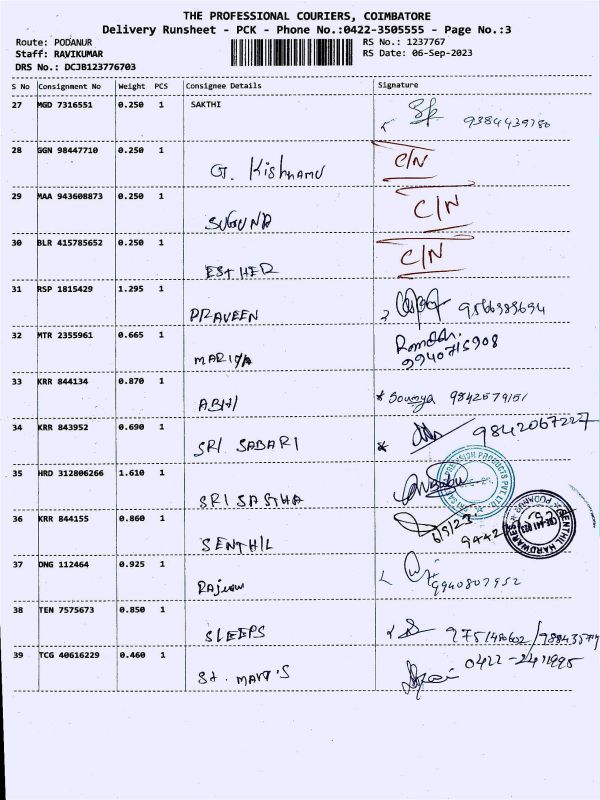 THE PROFESSIONAL COURIERS, COIMBATORE
Delivery Runsheet - PCK - Phone No.:0422-3505555 - Page No.:3
Route: PODANUR RS No.: 1237767
Staff: RAVIKUMAR RS Date: 06-Sep-2023
DRS No.: DCJB123776703
S No Consignment No Weight PCS Consignee Details Signature
27 MGD 7316551 0.250 1 SAKTHI
28 GGN 98447710 0.250 1 C/N
G. Kishnamu
29 MAA 943608873 0.250 1 C/N
SUGUNA
30 BLR 415785652 0.250 1 C/N
ESTHER
31 RSP 1815429 1.295 1
PRAVEEN
32 MTR 2355961 0.665 1
MARIYA 9940715908
33 KRR 844134 0.870 1
ABHI Sowmya 9842579151
34 KRR 843952 0.690 1 9842067227
SRI SABARI
35 HRD 312806266 1.610 1
SRI SASTHA
36 KRR 844155 0.860 1 6/9/23
SENTHIL
37 DNG 112464 0.925 1
9940807952
38 TEN 7575673 0.850 1
SLEEPS
39 TCG 40616229 0.460 1
St. MARY'S